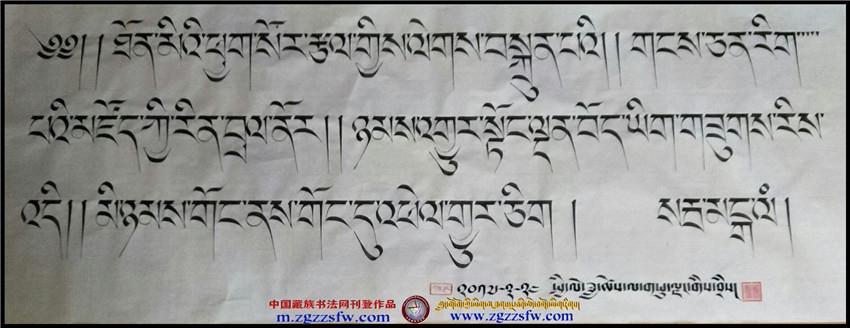 ༄༅།། ཐོན་མིའི་ཕྱག་སོར་རྩལ་གྱིས་ལེགས་བསྐྲུན་པའི།། གངས་ཅན་རིག་་་་་
པའི་མཛོད་ཀྱི་རིན་བྲལ་ནོར།། ཉམས་འགྱུར་སྟོང་ལྡན་བོད་ཡིག་གཟུགས་རིས་
འདི།། མི་ཉམས་གོང་ནས་གོང་དུ་འཕེལ་གྱུར་ཅིག ། སརྦ་མངྒ་ལཾ།
中国藏族书法网刊登作品
m.zgzzsfw.com www.zgzzsfw.com